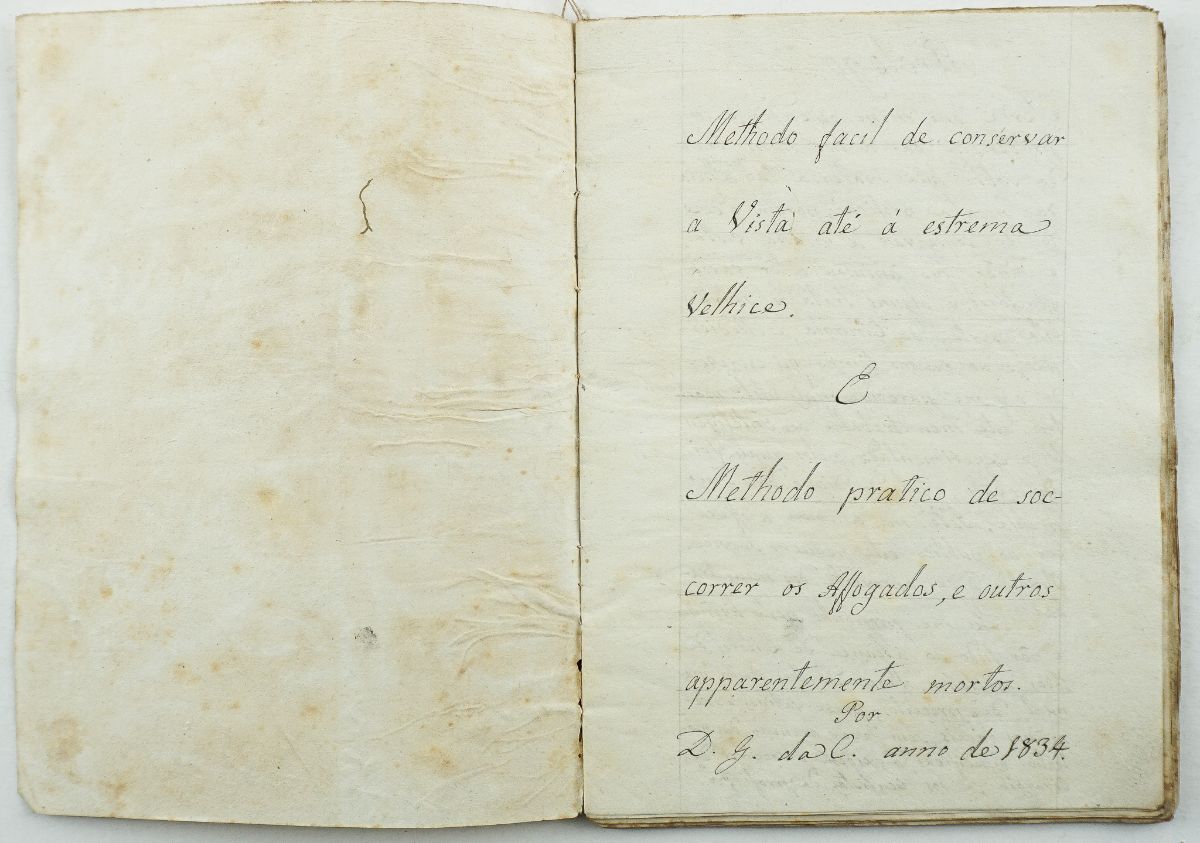 Methodo facil de conservar
a Vista até á estrema
Velhice.
E
Methodo pratico de soc-
correr os Affogados, e outros
apparentemente mortos.
Por
D. G. da C. anno de 1834.